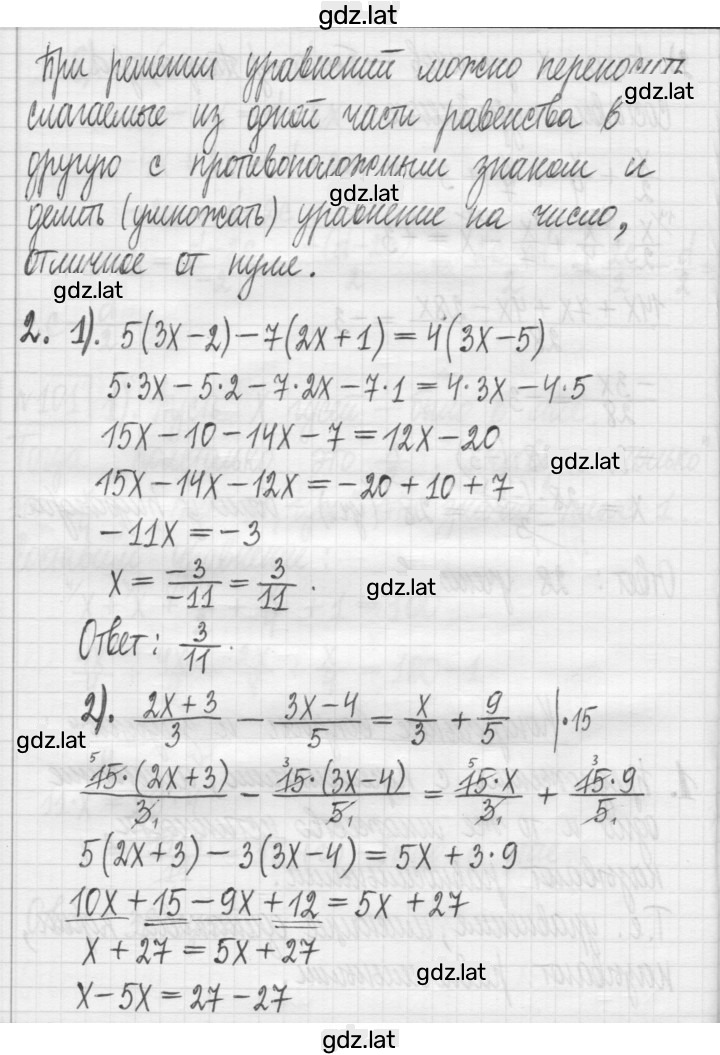 gdz.lat
При решении уравнений можно переносить
gdz.lat
слагаемые из одной части равенства в
другую с противоположным знаком и
gdz.lat
делить (умножать) уравнение на число,
отличное от нуля.
gdz.lat
2. 1). 5(3x-2)-7(2x+1)=4(3x-5)
5·3x-5·2-7·2x-7·1=4·3x-4·5
15x-10-14x-7=12x-20
gdz.lat
15x-14x-12x=-20+10+7
-11x=-3
x=\frac{-3}{-11}=\frac{3}{11}.
gdz.lat
Ответ: \frac{3}{11}.
2). \frac{2x+3}{3}-\frac{3x-4}{5}=\frac{x}{3}+\frac{9}{5} |·15
gdz.lat
\frac{^5 15·(2x+3)}{3_1}-\frac{^3 15·(3x-4)}{5_1}=\frac{^5 15·x}{3_1}+\frac{^3 15·9}{5_1}
5(2x+3)-3(3x-4)=5x+3·9
10x+15-9x+12=5x+27
x+27=5x+27
gdz.lat
x-5x=27-27
gdz.lat